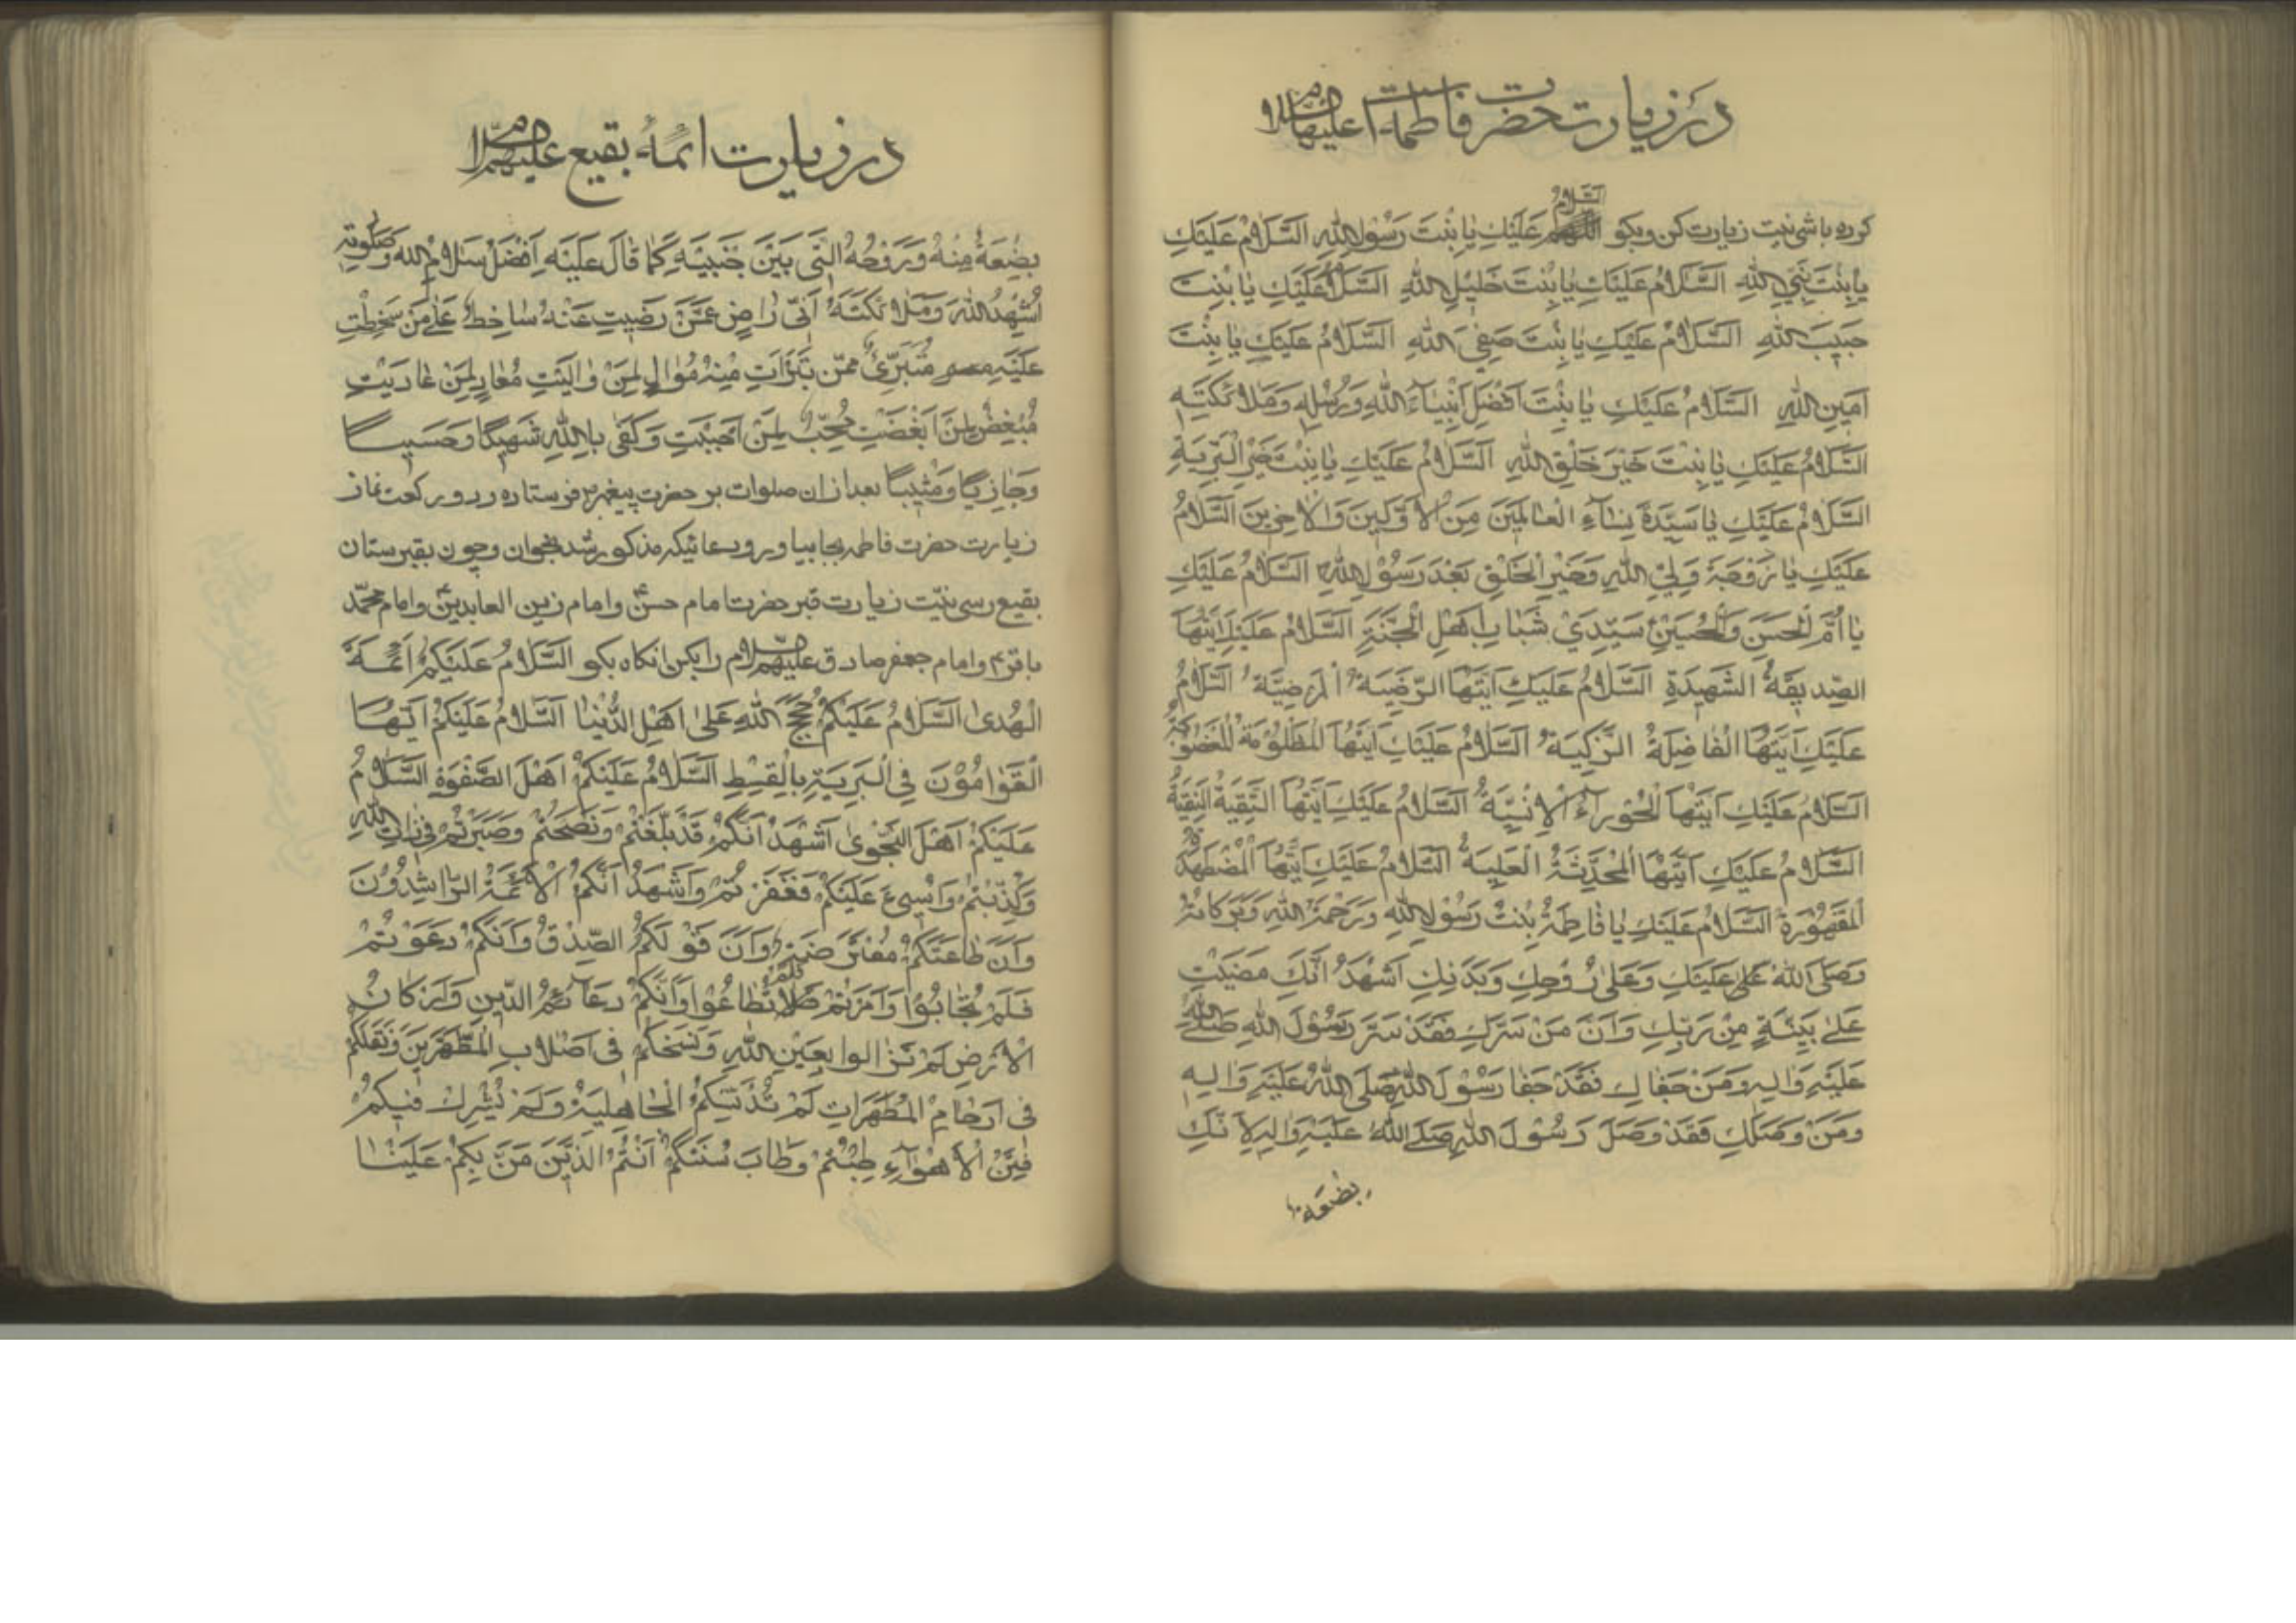 در زیارت حضرت فاطمه علیها السلام
کرده باشی نیت زیارت کن وبکو السَّلامُ عَلَيْكِ يا بِنْتَ رَسُولِ اللهِ السَّلامُ عَلَيْكِ
يا بِنْتَ نَبِيِّ اللهِ السَّلامُ عَلَيْكِ يا بِنْتَ خَليلِ اللهِ السَّلامُ عَلَيْكِ يا بِنْتَ
حَبيبِ اللهِ السَّلامُ عَلَيْكِ يا بِنْتَ صَفِيِّ اللهِ السَّلامُ عَلَيْكِ يا بِنْتَ
اَمينِ اللهِ السَّلامُ عَلَيْكِ يا بِنْتَ اَفْضَلِ اَنْبِيآءِ اللهِ وَرُسُلِهِ وَمَلائِكَتِهِ
السَّلامُ عَلَيْكِ يا بِنْتَ خَيْرِ خَلْقِ اللهِ السَّلامُ عَلَيْكِ يا بِنْتَ خَيْرِ الْبَرِيَّةِ
السَّلامُ عَلَيْكِ يا سَيِّدَةَ نِسآءِ الْعالَمينَ مِنَ الْاَوَّلينَ وَالْاخِرينَ السَّلامُ
عَلَيْكِ يا زَوْجَةَ وَلِيِّ اللهِ وَخَيْرِ الْخَلْقِ بَعْدَ رَسُولِ اللهِ السَّلامُ عَلَيْكِ
يا اُمَّ الْحَسَنِ وَالْحُسَيْنِ سَيِّدَيْ شَبابِ اَهْلِ الْجَنَّةِ السَّلامُ عَلَيْكِ اَيَّتُهَا
الصِّديقَةُ الشَّهيدَةِ السَّلامُ عَلَيْكِ اَيَّتُهَا الرَّضِيَّةُ المرْضِيَّةُ السَّلامُ
عَلَيْكِ اَيَّتُهَا الْفاضِلَةُ الزَّكِيَّةُ السَّلامُ عَلَيْكِ اَيَّتُهَا الْمَظْلُومَةُ الْمَغْصُوبَةُ
السَّلامُ عَلَيْكِ اَيَّتُهَا الْحَوْرآءُ الْاِنْسِيَّةُ السَّلامُ عَلَيْكِ اَيَّتُهَا التَّقِيَّةُ النَّقِيَّةُ
السَّلامُ عَلَيْكِ اَيَّتُهَا الْمُحَدَّثَةُ الْعَليمَةُ السَّلامُ عَلَيْكِ اَيَّتُهَا الْمُضْطَهَدَةُ
الْمَقْهُورَةُ السَّلامُ عَلَيْكِ يا فاطِمَةُ بِنْتَ رَسُولِ اللهِ وَرَحْمَةُ اللهِ وَبَرَكاتُهُ
وَصَلَّى اللهُ عَلَيْكِ وَعَلى رُوحِكِ وَبَدَنِكِ اَشْهَدُ اَنَّكِ مَضَيْتِ
عَلى بَيِّنَةٍ مِنْ رَبِّكِ وَاَنَّ مَنْ سَرَّكِ فَقَدْ سَرَّ رَسُولَ اللهِ صَلَّى اللهُ
عَلَيْهِ وَالِهِ وَمَنْ جَفاكِ فَقَدْ جَفا رَسُولَ اللهِ صَلَّى اللهُ عَلَيْهِ وَالِهِ
وَمَنْ وَصَلَكِ فَقَدْ وَصَلَ رَسُولَ اللهِ صَلَّى اللهُ عَلَيْهِ وَالِهِ لِاَنَّكِ
بضعة
در زیارت ائمهٔ بقیع علیهم السلام
بِضْعَةٌ مِنْهُ وَرُوحُهُ الَّتي بَيْنَ جَنْبَيْهِ كَما قالَ عَلَيْهِ اَفْضَلُ سَلامِ اللهِ وَصَلَوتِهِ
اُشْهِدُ اللهَ وَمَلائِكَتَهُ اَنّي راضٍ عَمَّنْ رَضيتِ عَنْهُ ساخِطٌ عَلى مَنْ سَخِطْتِ
عَلَيْهِ مُتَبَرِّئٌ مِمَّنْ تَبَرَّأْتِ مِنْهُ مُوالٍ لِمَنْ والَيْتِ مُعادٍ لِمَنْ عادَيْتِ
مُبْغِضٌ لِمَنْ اَبْغَضْتِ مُحِبٌّ لِمَنْ اَحْبَبْتِ وَكَفى بِاللهِ شَهيدًا وَحَسيبًا
وَجازِيًا وَمُثيبًا بعد ازان صلوات بر حضرت پیغمبر فرستاده ودو رکعت نماز
زیارت حضرت فاطمه بجا بیاور ودعائیکه مذکور شد بخوان وچون بقبرستان
بقیع رسی بنیّت زیارت قبر حضرت امام حسن ع وامام زین العابدین ع وامام محمّد
باقر ع وامام جعفر صادق علیهم السلام را بکن انکاه بکو السَّلامُ عَلَيْكُمْ اَئِمَّةَ
الْهُدى السَّلامُ عَلَيْكُمْ حُجَجَ اللهِ عَلى اَهْلِ الدُّنْيا السَّلامُ عَلَيْكُمْ اَيُّهَا
الْقَوّامُونَ فِي الْبَرِيَّةِ بِالْقِسْطِ السَّلامُ عَلَيْكُمْ اَهْلَ الصَّفْوَةِ السَّلامُ
عَلَيْكُمْ اَهْلَ النَّجْوى اَشْهَدُ اَنَّكُمْ قَدْ بَلَّغْتُمْ وَنَصَحْتُمْ وَصَبَرْتُمْ في ذاتِ اللهِ
وَكُذِّبْتُمْ وَاُسِيءَ عَلَيْكُمْ فَغَفَرْتُمْ وَاَشْهَدُ اَنَّكُمُ الْاَئِمَّةُ الرّاشِدُونَ
وَاَنَّ طاعَتَكُمْ مُفْتَرَضَةٌ وَاَنَّ قَوْلَكُمُ الصِّدْقُ وَاَنَّكُمْ دَعَوْتُمْ
فَلَمْ تُجابُوا وَاَمَرْتُمْ فَلَمْ تُطاعُوا وَاَنَّكُمْ دَعآئِمُ الدّينِ وَاَرْكانُ
الْاَرْضِ لَمْ تَزالوا بِعَيْنِ اللهِ وَيَنْسَخُكُمْ في اَصْلابِ الْمُطَهَّرينَ وَيَنْقُلُكُمْ
في اَرْحامِ الْمُطَهَّراتِ لَمْ تُدَنِّسْكُمُ الْجاهِلِيَّةُ وَلَمْ تُشْرِكْ فيكُمْ
فِتَنُ الْاَهْوآءِ طِبْتُمْ وَطابَ مَنْبَتُكُمْ اَنْتُمُ الَّذينَ مَنَّ بِكُمْ عَلَيْنا